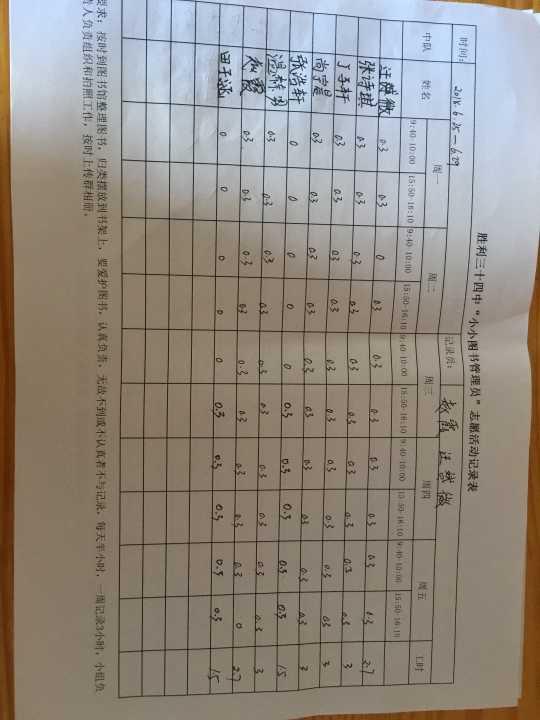 胜利三十四中“小小图书管理员”志愿活动记录表
时间: 2018.6.25—6.29 记录员:
中队 姓名 周一 周二 周三 周四 周五 工时
9:40-10:00 15:50-16:10 9:40-10:00 15:50-16:10 9:40-10:00 15:50-16:10 9:40-10:00 15:50-16:10 9:40-10:00 15:50-16:10
0.3 0.3 0 0.3 0.3 0.3 0.3 0.3 0.3 0.3 2.7
张诗琪 0.3 0.3 0.3 0.3 0.3 0.3 0.3 0.3 0.3 0.3 3
丁子轩 0.3 0.3 0.3 0.3 0.3 0.3 0.3 0.3 0.3 0.3 3
0.3 0.3 0.3 0.3 0.3 0.3 0.3 0.3 0.3 0.3 3
张浩轩 0 0 0 0 0 0.3 0.3 0.3 0.3 0.3 1.5
0.3 0.3 0.3 0.3 0.3 0.3 0.3 0.3 0.3 0.3 3
0.3 0.3 0.3 0.3 0.3 0.3 0.3 0.3 0.3 0 2.7
田子涵 0 0 0 0 0 0.3 0.3 0.3 0.3 0.3 1.5
要求：按时到图书馆整理图书，归类摆放到书架上，要爱护图书，认真负责，无故不到或不认真者不与记录，每天半小时，一周记录3小时，小组负
责人负责组织和拍照工作，按时上传群相册。